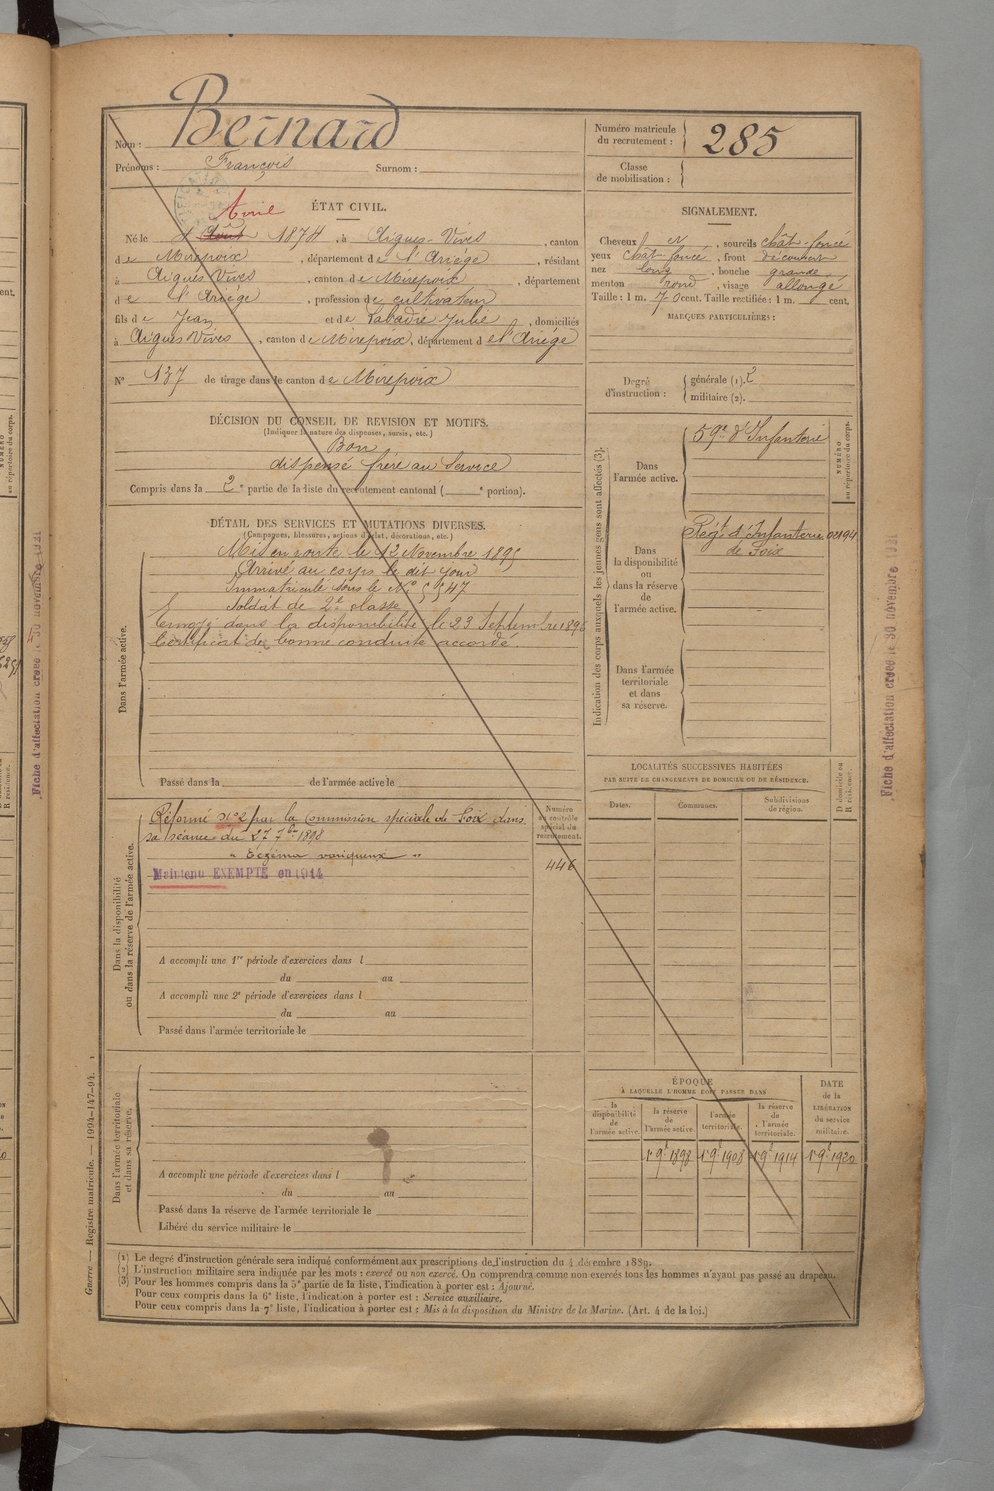 Nom : Bernard
Prénoms : François Surnom :
Numéro matricule du recrutement : 285
Classe de mobilisation :
ÉTAT CIVIL.
Avril
Né le 4 Août 1874, à Aigues-Vives, canton
de Mirepoix, département de l'Ariège, résidant
à Aigues Vives, canton de Mirepoix, département
de l'Ariège, profession de cultivateur
fils de Jean et de Labadie Julie, domiciliés
à Aigues Vives, canton de Mirepoix, département de l'Ariège
N° 137 de tirage dans le canton de Mirepoix
SIGNALEMENT.
Cheveux , sourcils chât-foncé
yeux chât-foncé, front découvert
nez long, bouche grande
menton rond, visage allongé
Taille : 1 m. 70 cent. Taille rectifiée : 1 m. cent.
MARQUES PARTICULIÈRES :
Degré d'instruction : générale (1). 2
militaire (2).
DÉCISION DU CONSEIL DE REVISION ET MOTIFS.
(Indiquer la nature des dispenses, sursis, etc.)
Bon
dispensé frère au Service
Compris dans la 2e partie de la liste du recrutement cantonal ( e portion).
DÉTAIL DES SERVICES ET MUTATIONS DIVERSES.
(Campagnes, blessures, actions d'éclat, décorations, etc.)
Dans l'armée active.
Mis en route le 12 Novembre 1895
Arrivé au corps le dit jour
Immatriculé sous le No 5547
Soldat de 2e classe
Envoyé dans la disponibilité le 23 Septembre 1896
Certificat de bonne conduite accordé.
Passé dans la de l'armée active le
Indication des corps auxquels les jeunes gens sont affectés (3).
NUMÉRO au répertoire du corps.
Dans l'armée active.
59e d'Infanterie
Dans la disponibilité ou dans la réserve de l'armée active.
Régt d'Infanterie 02194
de Foix
Dans l'armée territoriale et dans sa réserve.
Dans la disponibilité ou dans la réserve de l'armée active.
Réformé No 2 par la Commission spéciale de Foix dans
sa séance du 27 7bre 1898
" Eczéma variqueux "
Maintenu EXEMPTÉ en 1914
Numéro au contrôle spécial du recrutement.
446
A accompli une 1re période d'exercices dans l
du au
A accompli une 2e période d'exercices dans l
du au
Passé dans l'armée territoriale le
LOCALITÉS SUCCESSIVES HABITÉES
PAR SUITE DE CHANGEMENTS DE DOMICILE OU DE RÉSIDENCE.
Dates. Communes. Subdivisions de région. D domicile ou R résidence.
Dans l'armée territoriale et dans sa réserve.
A accompli une période d'exercices dans l
du au
Passé dans la réserve de l'armée territoriale le
Libéré du service militaire le
ÉPOQUE
À LAQUELLE L'HOMME DOIT PASSER DANS
la disponibilité de l'armée active.
la réserve de l'armée active.
l'armée territoriale.
la réserve de l'armée territoriale.
DATE de la LIBÉRATION du service militaire.
1r 9e 1898 1r 9e 1908 1r 9e 1914 1r 9e 1920
(1) Le degré d'instruction générale sera indiqué conformément aux prescriptions de l'instruction du 4 décembre 1889.
(2) L'instruction militaire sera indiquée par les mots : exercé ou non exercé. On comprendra comme non exercés tous les hommes n'ayant pas passé au drapeau.
(3) Pour les hommes compris dans la 5e partie de la liste, l'indication à porter est : Ajourné.
Pour ceux compris dans la 6e liste, l'indication à porter est : Service auxiliaire.
Pour ceux compris dans la 7e liste, l'indication à porter est : Mis à la disposition du Ministre de la Marine. (Art. 4 de la loi.)
Guerre. — Registre matricule. — 1994-147-94.
Fiche d'affectation créée le 30 novembre 1921
Fiche d'affectation créée le 30 novembre 1921